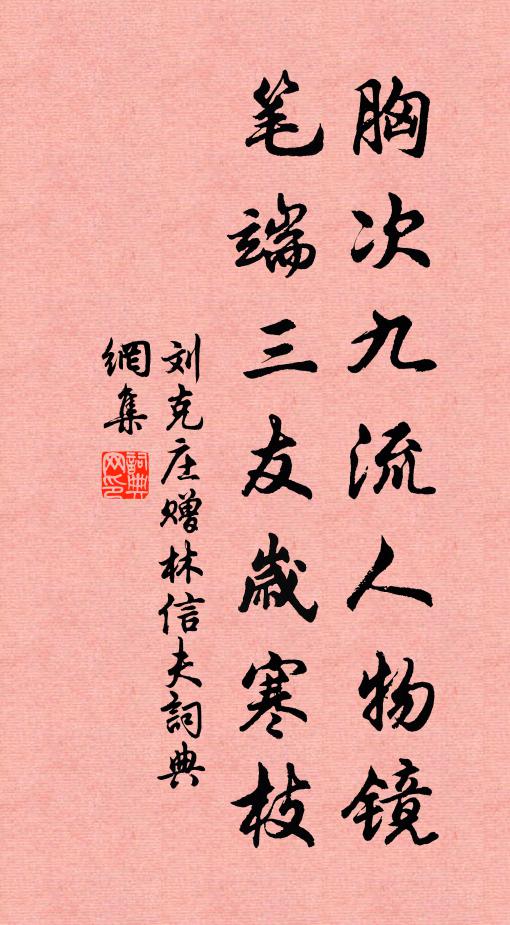 胸次九流人物镜
笔端三友岁寒枝
刘克庄赠林信夫詞典
網集
詞典
网印